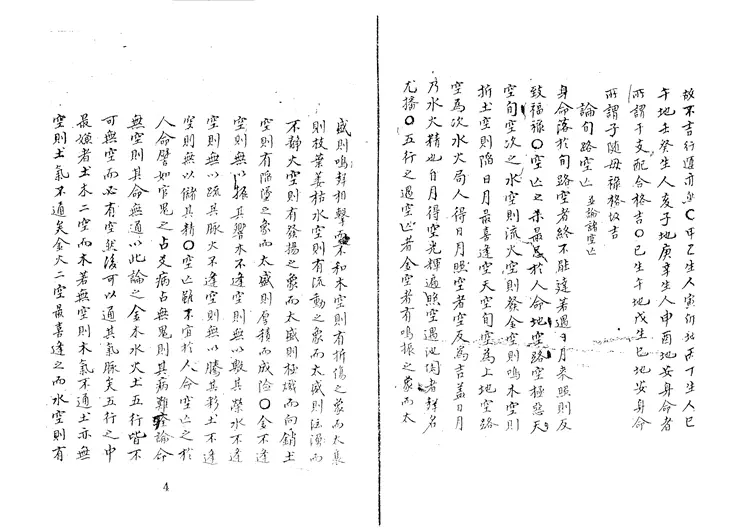 故不吉行運亦然〇甲乙生人寅卯地丙丁生人巳
午地壬癸生人亥子地庚辛生人申酉地安身命者
所謂干支配合格吉〇己生午地戊生巳地安身命
所謂子随母禄格故吉
論旬路空亡 並論諸空亡
身命落於旬路空者終不能達若遇日月来照則反
致福禄〇空亡之来最忌於人命地空路空極惡天
空旬空次之水空則流火空則發金空則鳴木空則
折土空則陷日月最喜逢空天空旬空為上地空路
空為次水火局人得日月照空者空反為吉盖日月
乃水火精也日月得空光輝遍照空遇池陶者聲名
尤播〇五行之遇空亡者金空者有鳴振之象而太
盛則鳴聲相擊而不和木空則有折傷之象而太衰
則枝葉萎枯水空則有流動之象而太盛則汪濱而
不静火空則有發揚之象而太盛則極熾而向銷土
空則有陷墮之象而太盛則厚積而成險〇金不逢
空則無以振其響木不逢空則無以敷其榮水不逢
空則無以疏其脉火不逢空則無以騰其彩土不逢
空則無以儲其精〇空亡雖不宜於人命空亡之於
人命譬如官鬼之占爻病占無鬼則其病難論命
無空則其命無通以此論之金木水火土五行皆不
可無空而必有空然後可以通其氣脉矣五行之中
最嫌者土木二空而木若無空則木氣不通土亦無
空則土氣不通矣金火二空最喜逢之而水空則有
4